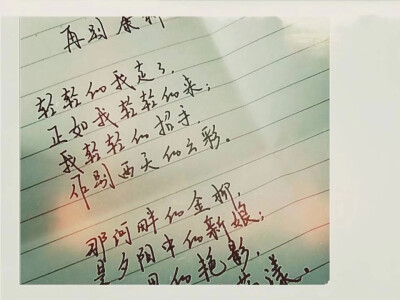 再别康桥
轻轻的我走了，
正如我轻轻的来；
我轻轻的招手，
作别西天的云彩。
那河畔的金柳，
是夕阳中的新娘；
的艳影，
漾。